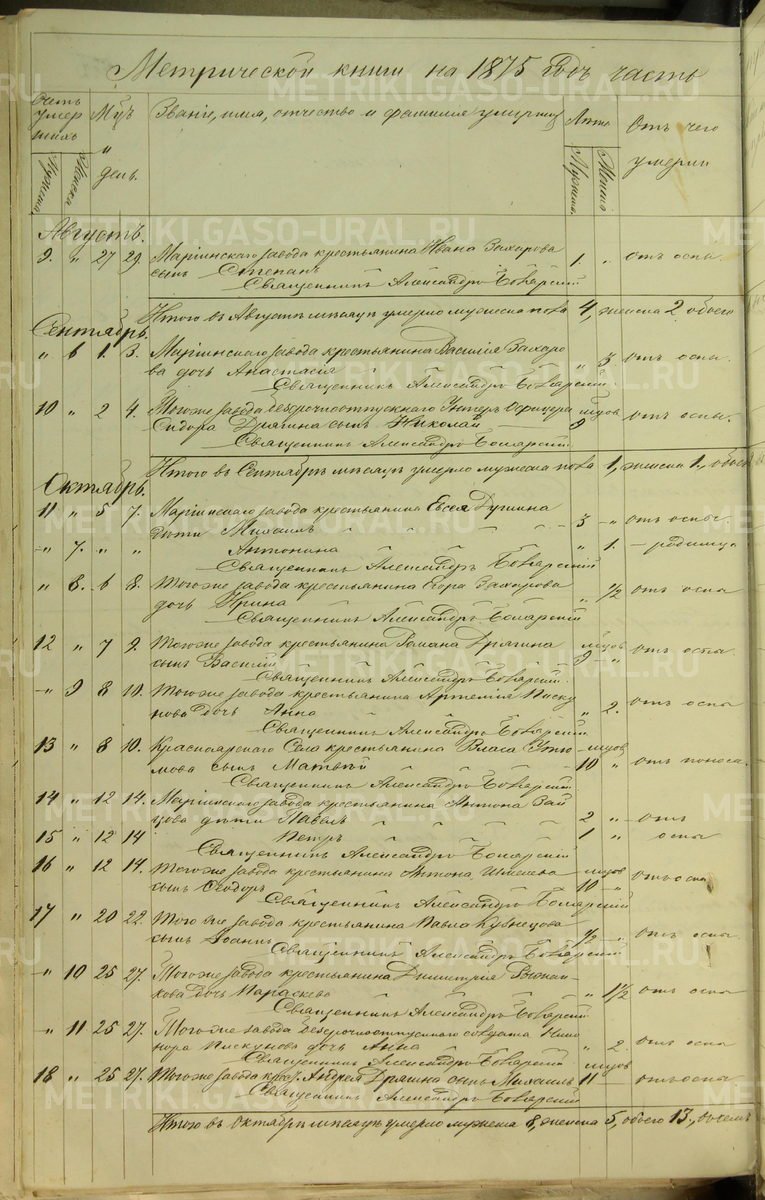 Метрической книги на 1875 годъ часть
Счетъ умершихъ Мужска Женска Мѣсяцъ и день. Званіе, имя, отчество и фамилія умершихъ Лѣта Мужска Женска Отъ чего умерли
Августъ.
9. „ 27 29. Маріинскаго завода крестьянина Ивана Захарова 1. „ отъ оспы.
сынъ Степанъ
Священникъ Александръ Боярскій
Итого въ Августѣ мѣсяцѣ умерло мужеска пола 4, женска 2 обоего
Сентябрь.
„ 6 1. 3. Маріинскаго завода крестьянина Василія Захаро „ 3 отъ оспы.
ва дочь Анастасія
Священникъ Александръ Боярскій.
10 „ 2 4. Того же завода безсрочноотпускнаго Унтеръ Офицера мцов отъ оспы.
Сидора Дрягина сынъ Николай 9
Священникъ Александръ Боярскій.
Итого въ Сентябрѣ мѣсяцѣ умерло мужеска пола 1, женска 1, обоего
Октябрь.
11 „ 5 7. Маріинскаго завода крестьянина Евсея
дѣти Михаилъ 3 „ отъ оспы.
„ 7. „ „ Антонина „ 1. – родимца
Священникъ Александръ Боярскій
„ 8. 6 8. Того же завода крестьянина Захарова „ 1/2 отъ оспы
дочь Ирина
Священникъ Александръ Боярскій
12 „ 7 9. Того же завода крестьянина Романа Дрягина мцов отъ оспы.
сынъ Василій 9 „
Священникъ Александръ Боярскій.
„ 9 8 10. Того же завода крестьянина Артемія Писку „ 2. отъ оспы
нова дочь Анна
Священникъ Александръ Боярскій
13 „ 8 10. Красноярскаго Села крестьянина Власа мцов отъ поноса.
мова сынъ Матвѣй 10 „
Священникъ Александръ Боярскій.
14 „ 12 14. Маріинскаго завода крестьянина Антона Зай
цова дѣти Павелъ 2 „ отъ
15 „ 12 14 Петръ 1 „ оспы
Священникъ Александръ Боярскій
16 „ 12 14. Того же завода крестьянина Антона мцов отъ оспы
сынъ Ѳеодоръ 10 „
Священникъ Александръ Боярскій
17 „ 20 22. Того же завода крестьянина Павла Кузнецова 1/2 „ отъ оспы
сынъ Іоаннъ
Священникъ Александръ Боярскій
„ 10 25 27. Того же завода крестьянина Димитрія
кова дочь Параскева „ 1 1/2 отъ оспы
Священникъ Александръ Боярскій
„ 11 25 27. Того же завода безсрочноотпускнаго солдата Ника
нора Пискунова дочь Анна „ 2. отъ оспы
Священникъ Александръ Боярскій мцов
18 „ 25 27. Того же завода крест. Андрея Дрягина сынъ Михаилъ 11 отъ оспы
Священникъ Александръ Боярскій
Итого въ октябрѣ мѣсяцѣ умерло мужеска 8, женска 5, обоего 13.
METRIKI.GASO-URAL.RU